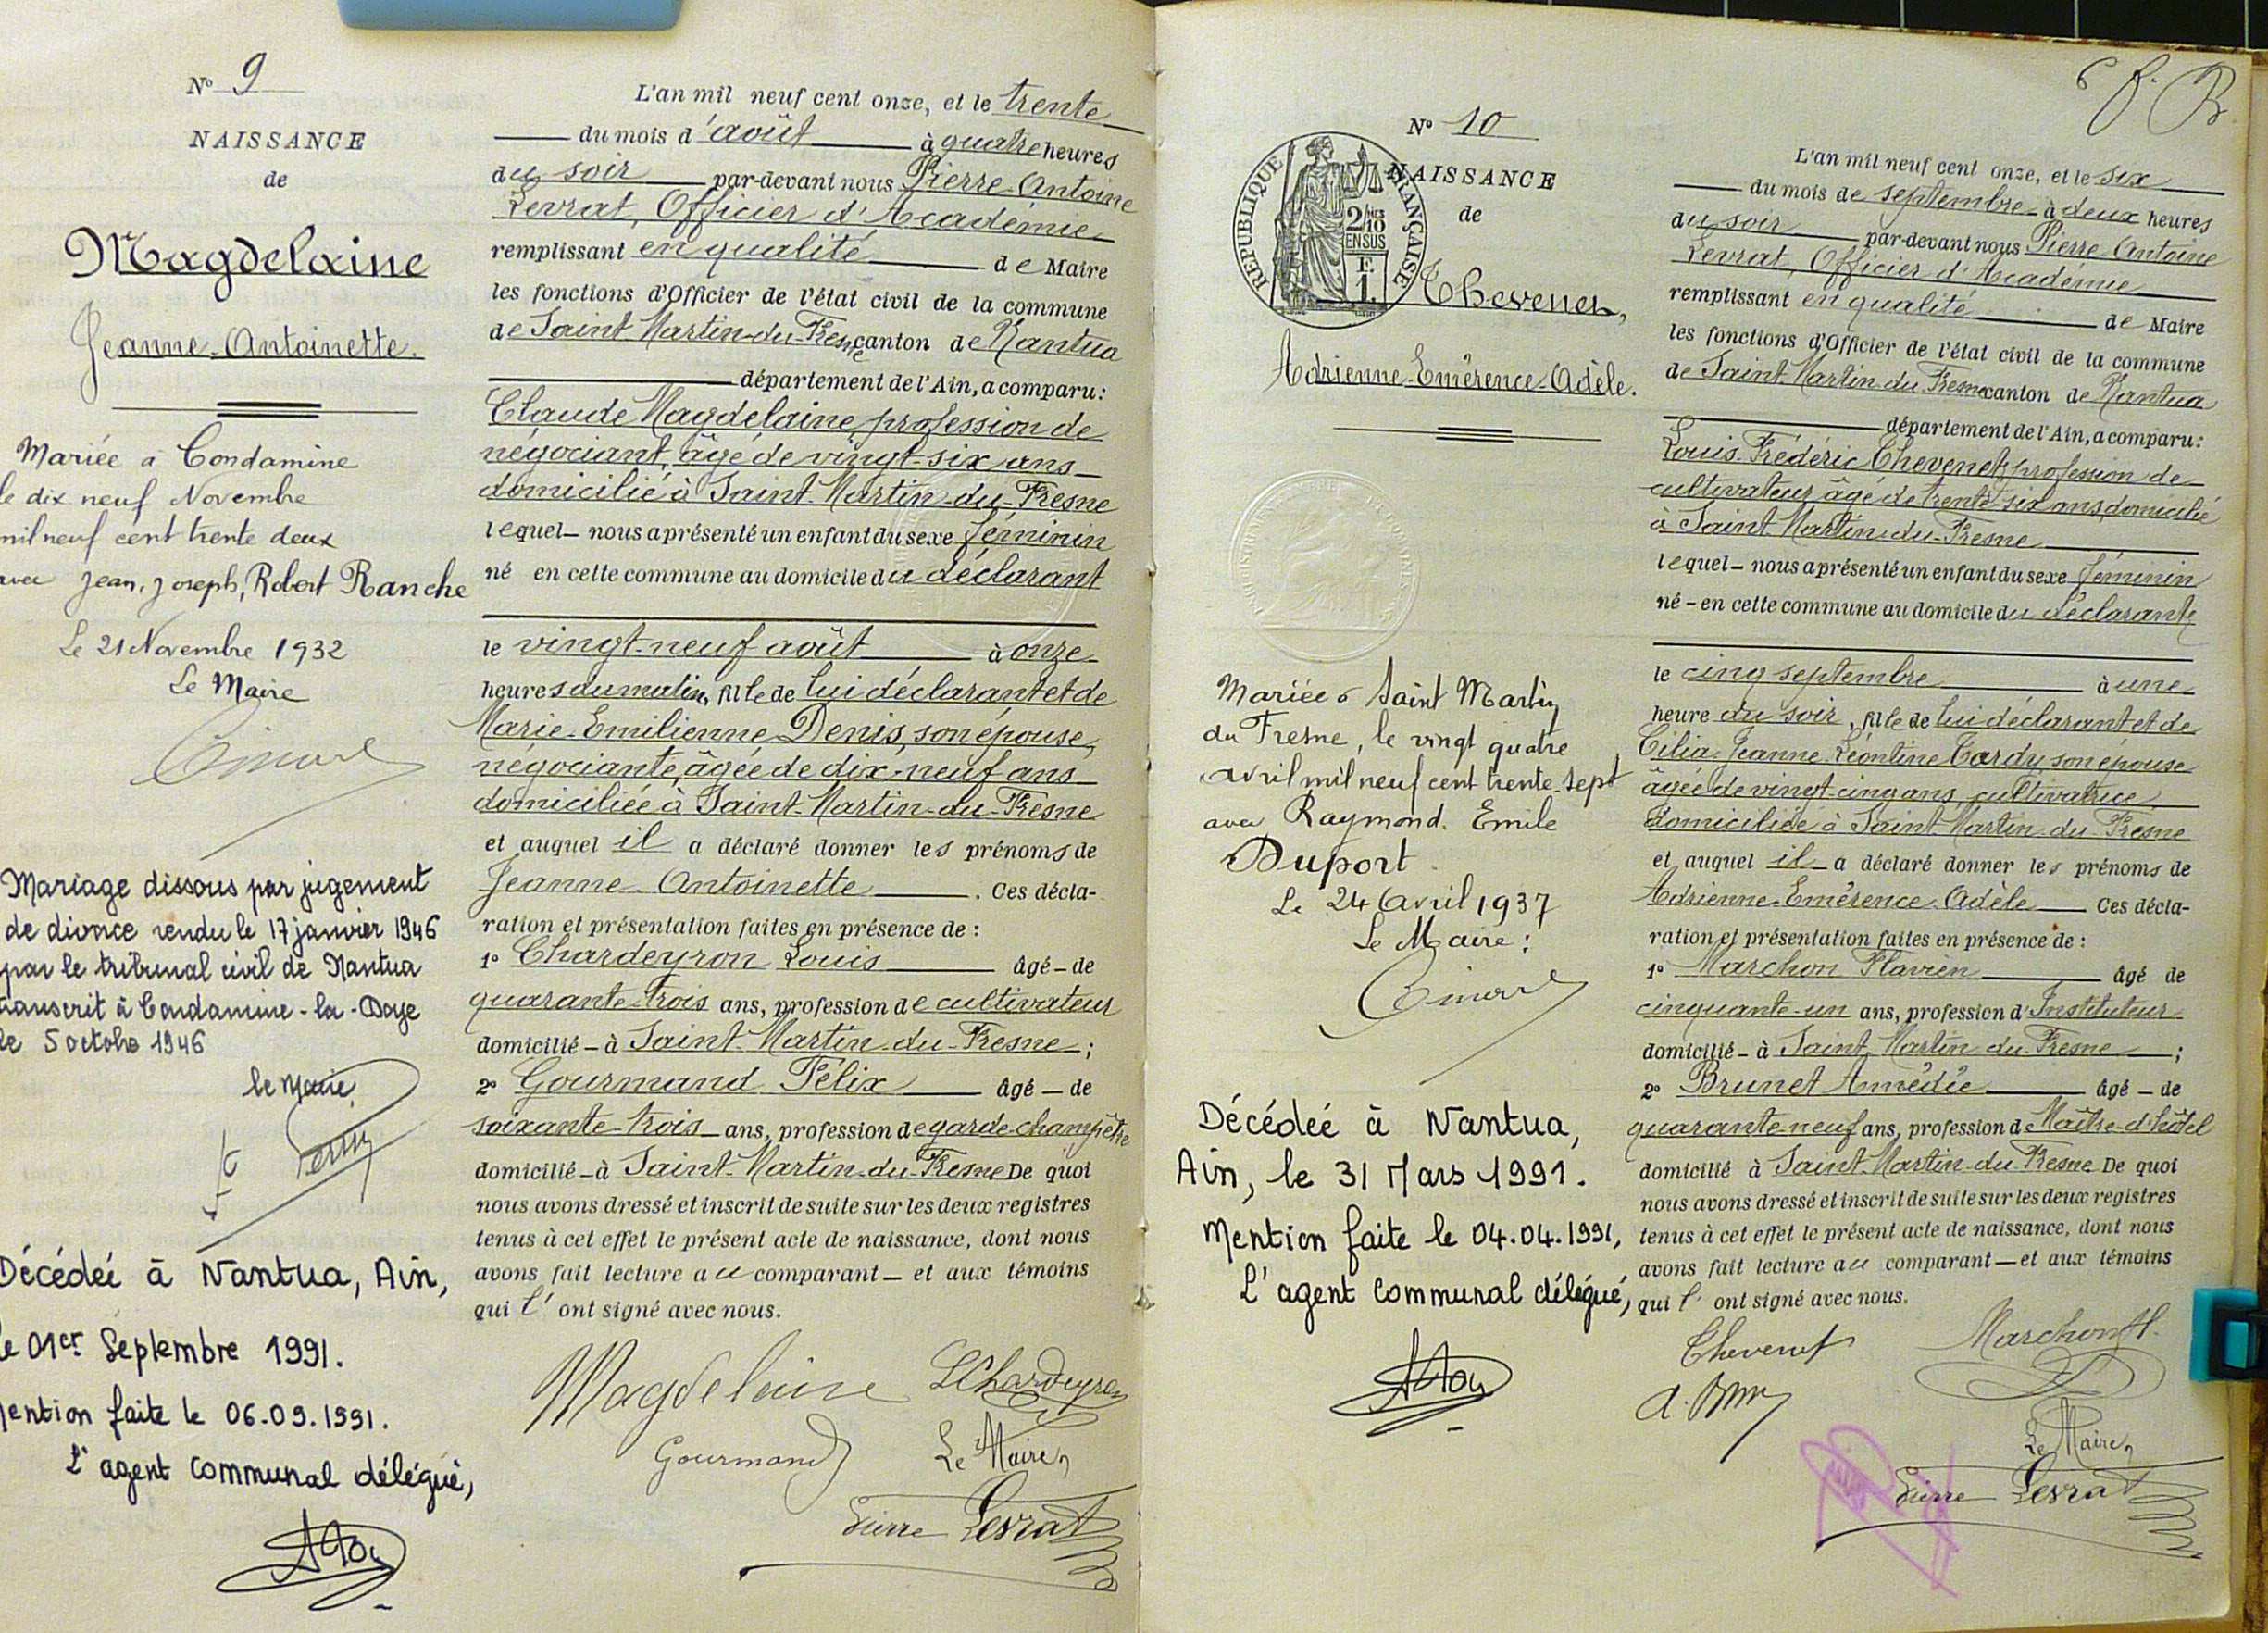 N° 9
NAISSANCE
de
Magdelaine
Jeanne-Antoinette.
Mariée à Condamine
le dix neuf Novembre
mil neuf cent trente deux
avec Jean, Joseph, Robert Ranche
Le 21 Novembre 1932
Le Maire
Mariage dissous par jugement
de divorce rendu le 17 janvier 1946
par le tribunal civil de Nantua
transcrit à Condamine-la-Doye
le 5 octobre 1946
le Maire
Décédée à Nantua, Ain,
le 01er Septembre 1991.
Mention faite le 06.09.1991.
L'agent communal délégué,
L'an mil neuf cent onze, et le trente
du mois d'août à quatre heures
du soir par-devant nous Pierre-Antoine
Levrat, Officier d'Académie
remplissant en qualité de Maire
les fonctions d'Officier de l'état civil de la commune
de Saint-Martin-du-Fresne canton de Nantua
département de l'Ain, a comparu:
Claude Magdelaine, profession de
négociant, âgé de vingt-six ans
domicilié à Saint-Martin-du-Fresne
lequel nous a présenté un enfant du sexe féminin
né en cette commune au domicile du déclarant
le vingt-neuf août à onze
heures du matin, fille de lui déclarant et de
Marie-Emilienne Denis, son épouse,
négociante, âgée de dix-neuf ans
domiciliée à Saint-Martin-du-Fresne
et auquel il a déclaré donner les prénoms de
Jeanne-Antoinette. Ces décla-
ration et présentation faites en présence de :
1° Chardeyron Louis âgé de
quarante-trois ans, profession de cultivateur
domicilié à Saint-Martin-du-Fresne ;
2° Gourmand Félix âgé de
soixante-trois ans, profession de garde-champêtre
domicilié à Saint-Martin-du-Fresne De quoi
nous avons dressé et inscrit de suite sur les deux registres
tenus à cet effet le présent acte de naissance, dont nous
avons fait lecture au comparant et aux témoins
qui l'ont signé avec nous.
Magdelaine LChardeyron
Gourmand Le Maire,
Pierre Levrat
N° 10
NAISSANCE
de
REPUBLIQUE FRANÇAISE
2/10
EN SUS
F.
1.
Thevenet,
Adrienne-Emérence-Adèle.
Mariée à Saint Martin
du Fresne, le vingt quatre
avril mil neuf cent trente-sept
avec Raymond. Emile
Duport
Le 24 Avril 1937
Le Maire :
Décédée à Nantua,
Ain, le 31 Mars 1991.
Mention faite le 04.04.1991,
L'agent communal délégué,
L'an mil neuf cent onze, et le six
du mois de septembre à deux heures
du soir par-devant nous Pierre-Antoine
Levrat, Officier d'Académie
remplissant en qualité de Maire
les fonctions d'Officier de l'état civil de la commune
de Saint-Martin-du-Fresne canton de Nantua
département de l'Ain, a comparu:
Louis-Frédéric Thevenet, profession de
cultivateur âgé de trente-six ans, domicilié
à Saint-Martin-du-Fresne
lequel nous a présenté un enfant du sexe féminin
né en cette commune au domicile du déclarant
le cinq septembre à une
heure du soir, fille de lui déclarant et de
Cilia-Jeanne-Léontine Tardy son épouse
âgée de vingt-cinq ans, cultivatrice,
domiciliée à Saint-Martin-du-Fresne
et auquel il a déclaré donner les prénoms de
Adrienne-Emérence-Adèle Ces décla-
ration et présentation faites en présence de :
1° Marchon Flavien âgé de
cinquante-un ans, profession d'Instituteur
domicilié à Saint-Martin-du-Fresne ;
2° Brunet Amédée âgé de
quarante-neuf ans, profession de Maître-d'hôtel
domicilié à Saint-Martin-du-Fresne De quoi
nous avons dressé et inscrit de suite sur les deux registres
tenus à cet effet le présent acte de naissance, dont nous
avons fait lecture au comparant et aux témoins
qui l'ont signé avec nous.
Thevenet Marchon fl.
Le Maire,
Pierre Levrat